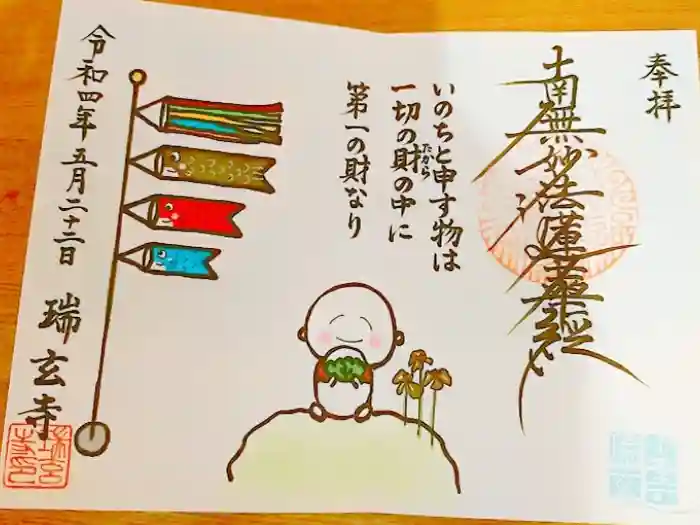 奉拝
南無妙法蓮華経
いのちと申す物は
一切の財の中に
たから
第一の財なり
令和四年 五月二十二日 瑞玄寺